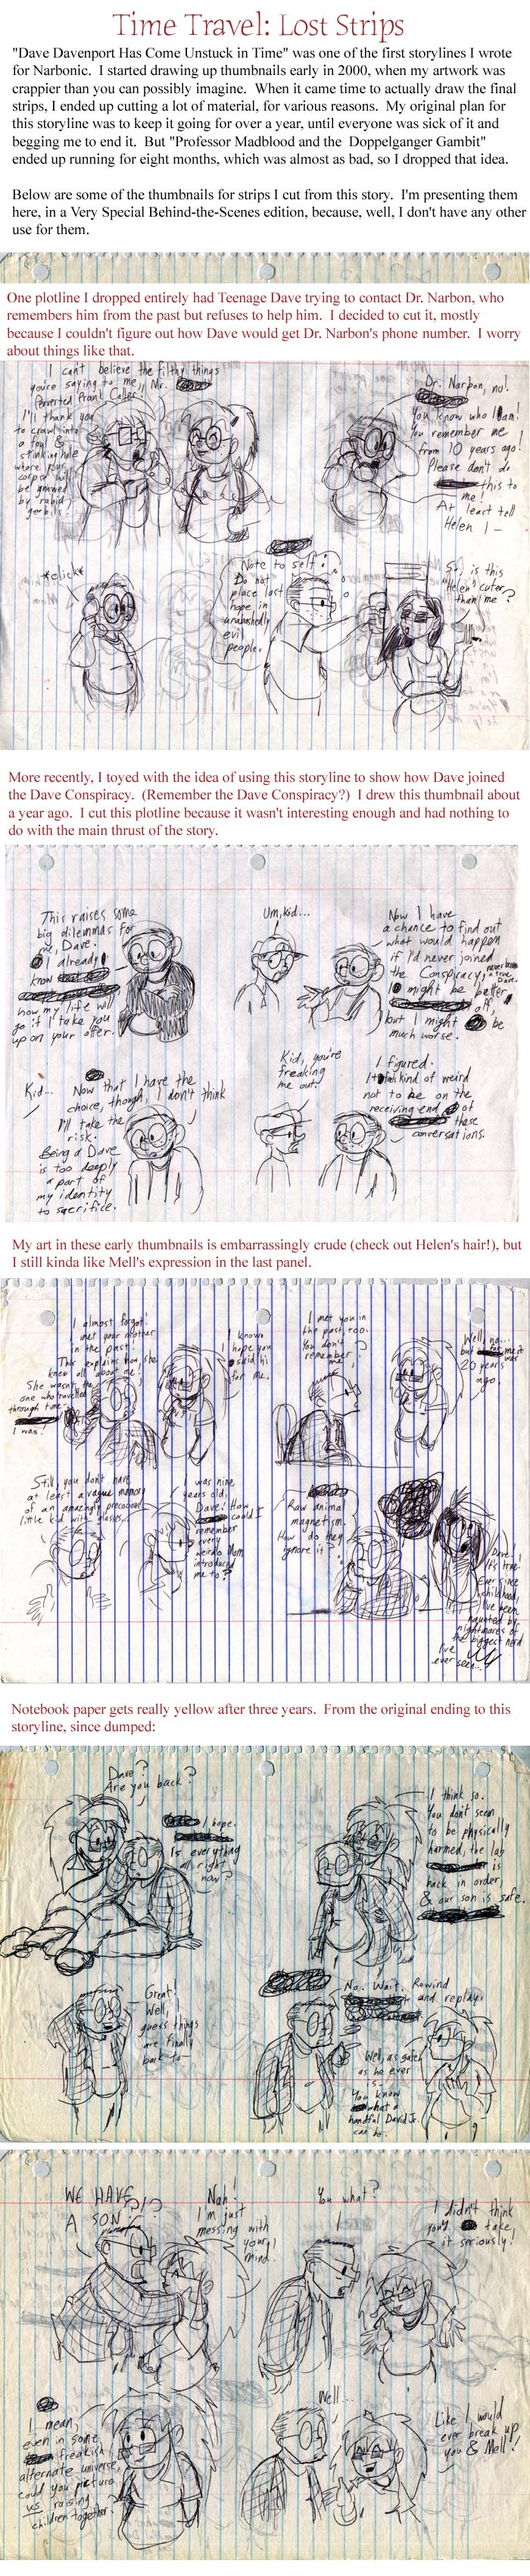 Time Travel: Lost Strips
"Dave Davenport Has Come Unstuck in Time" was one of the first storylines I wrote
for Narbonic.  I started drawing up thumbnails early in 2000, when my artwork was
crappier than you can possibly imagine.  When it came time to actually draw the final
strips, I ended up cutting a lot of material, for various reasons.  My original plan for
this storyline was to keep it going for over a year, until everyone was sick of it and
begging me to end it.  But "Professor Madblood and the  Doppelganger Gambit"
ended up running for eight months, which was almost as bad, so I dropped that idea.
Below are some of the thumbnails for strips I cut from this story.  I'm presenting them
here, in a Very Special Behind-the-Scenes edition, because, well, I don't have any other
use for them.
One plotline I dropped entirely had Teenage Dave trying to contact Dr. Narbon, who
remembers him from the past but refuses to help him.  I decided to cut it, mostly
because I couldn't figure out how Dave would get Dr. Narbon's phone number.  I worry
about things like that.
I can't believe the filthy things
you're saying to me, Mr.
Perverted Prank Caller.
I'll thank you
to crawl into
a foul &
stinking hole
where your
corpse will
be gnawed
by rabid
gerbils.
Dr. Narbon, no!
You know who I am!
You remember me
from 10 years ago!
Please don't do
this to
me!
At least tell
Helen I –
*click*
Note to self:
Do not
place last
hope in
unabashedly
evil
people.
So, is this
"Helen" cuter
than me?
More recently, I toyed with the idea of using this storyline to show how Dave joined
the Dave Conspiracy.  (Remember the Dave Conspiracy?)  I drew this thumbnail about
a year ago.  I cut this plotline because it wasn't interesting enough and had nothing to
do with the main thrust of the story.
This raises some
big dilemmas for
me, Dave.
I already
know
how my life will
go if I take you
up on your offer.
Um, kid...
Now I have
a chance to find out
what would happen
if I'd never joined
the Conspiracy,
never been
a true
Dave.
I might be better
off,
but I might be
much worse.
Kid...
Now that I have the
choice, though, I don't think
I'll take the
risk.
Being a Dave
is too deeply
a part of
my identity
to sacrifice.
Kid, you're
freaking
me out.
I figured.
It feels kind of weird
not to be on the
receiving end of
these
conversations.
My art in these early thumbnails is embarrassingly crude (check out Helen's hair!), but
I still kinda like Mell's expression in the last panel.
I almost forgot!
I met your mother
in the past.
This explains how she
knew all about me!
She wasn't the
one who travelled
through time
I was!
I know.
I hope you
said hi
for me.
I met you in
the past, too.
You don't
remember
me?
Well, no...
but for me it
was
20 years
ago.
Still, you don't have
at least a vague memory
of an amazingly precocious
little kid with glasses,
I was nine
years old,
Dave! How
could I
remember
every
weirdo Mom
introduced
me to?
Raw animal
magnetism.
How do they
ignore it?
Dave!
It's true!
Ever since
childhood,
I've been
haunted by
nightmares of
the biggest nerd
I've
ever seen...
Notebook paper gets really yellow after three years.  From the original ending to this
storyline, since dumped:
Dave?
Are you back?
I hope.
Is everything
all right
now?
I think so.
You don't seem
to be physically
harmed, the lab
is
back in order,
& our son is safe.
Great!
Well,
guess things
are finally
back to–
No. Wait. Rewind
and replay.
Well, as safe
as he ever
is.
You know
what a
handful David Jr.
can be.
WE HAVE
A SON?!?
Nah!
I'm just
messing with
your
mind.
You what?
I didn't think
you'd take
it seriously!
I mean,
even in some
freakish
alternate universe,
could you picture
us raising
children together?
Well...
Like I would
ever break up
you & Mell!